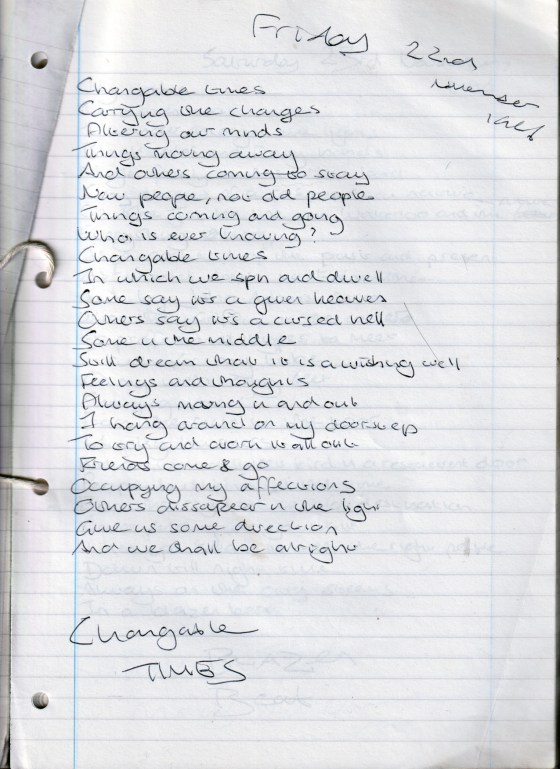 Friday 22nd
November
Changable times
Carrying the changes
Altering our minds
Things moving away
And others coming to stay
New people, not old people
Things coming and going
Who is ever knowing?
Changable times
In which we spn and dwell
Some say it's a given heaven
Others say it's a cursed hell
Some in the middle
Still dream that it is a wishing well
Feelings and thoughts
Always moving in and out
I hang around on my doorstep
To try and work it all out
Friends come & go
Occupying my affections
Others dissapear in the light
Give us some direction
And we shall be alright
Changable
TIMES